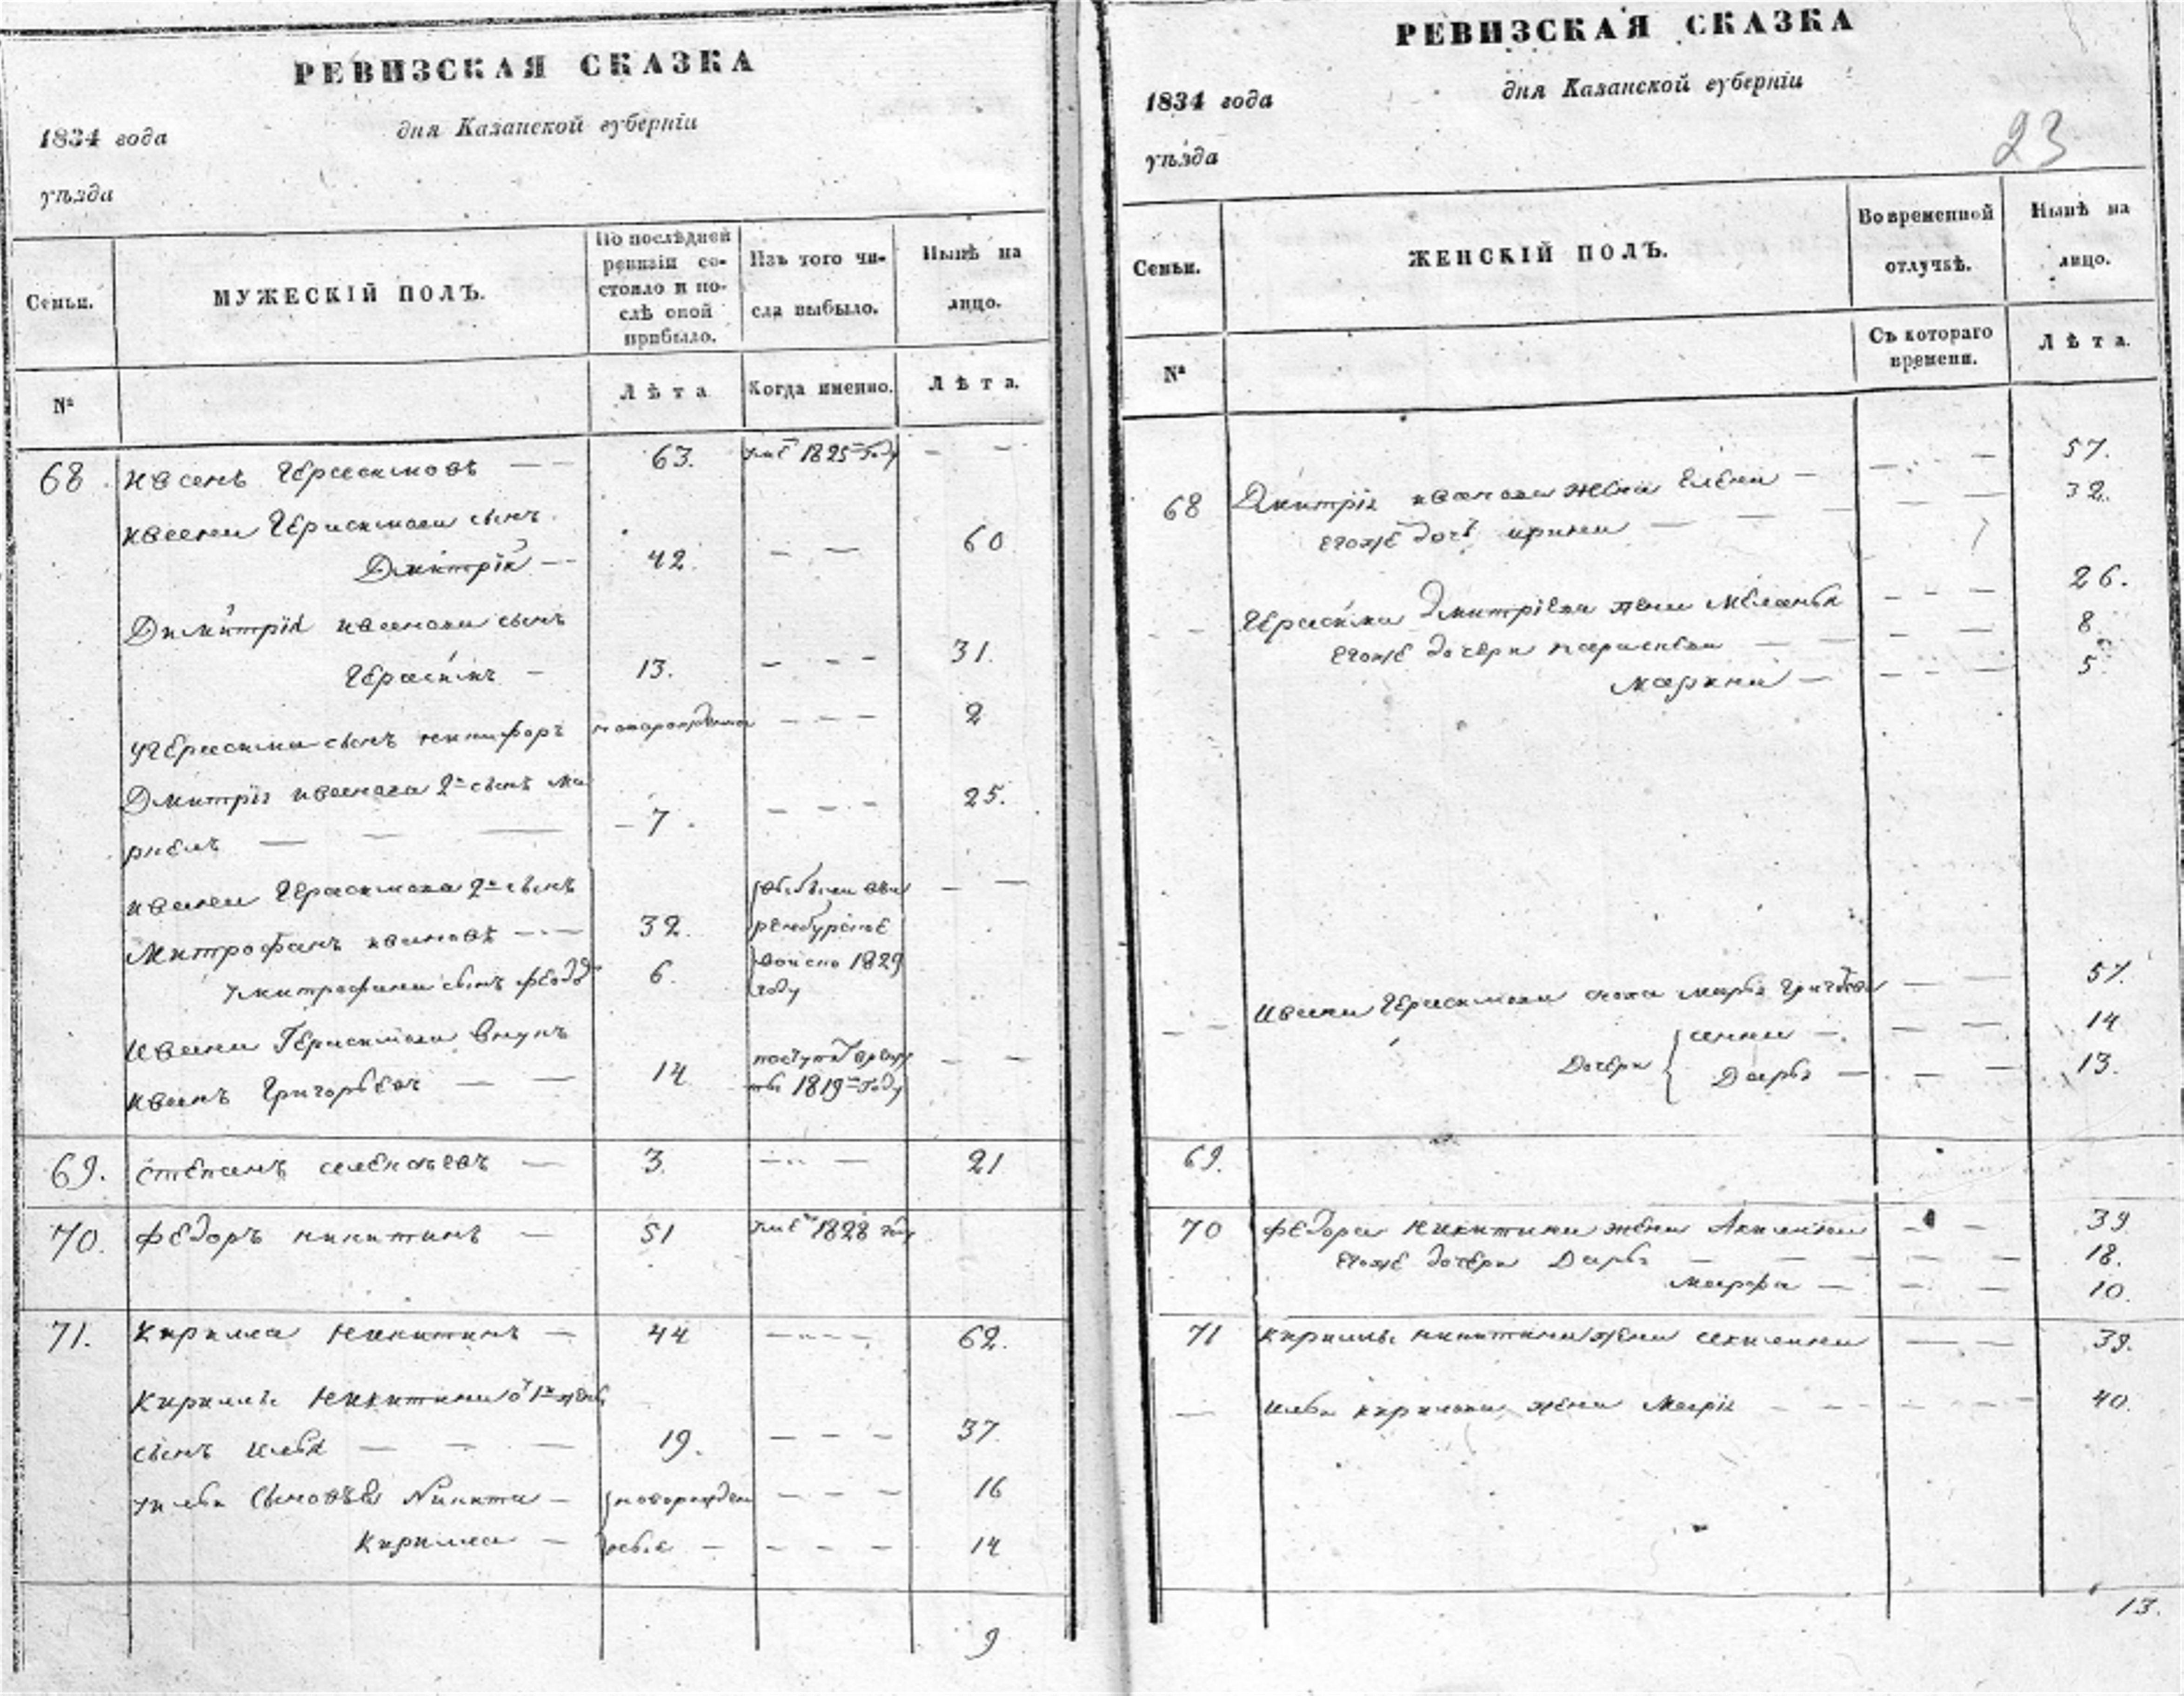 РЕВИЗСКАЯ СКАЗКА
1834 года дня Казанской губерніи
уѣзда
Семьи.
МУЖЕСКІЙ ПОЛЪ.
По послѣдней ревизіи со-
стояло и по-
слѣ оной
прибыло.
Изъ того чи-
сла выбыло.
Нынѣ на
лицо.
№
Лѣта
Когда именно.
Лѣта.
68 Иванъ Герасимовъ — 63. 1825 Году — —
Ивана Герасимова сынъ
Дмитрій — 42. — — 60
Димитрія Иванова сынъ
Герасимъ — 13. — — — 31.
У Герасима сынъ Никифоръ новорожденной — — — 2
Дмитрія Иванова 2й сынъ
7. — — — 25.
Ивана Герасимова 2й сынъ
Митрофанъ Ивановъ — 32.
У Митрофана сынъ Федоръ 6. 1829
году
Ивана Герасимова внукъ
Иванъ Григорьевъ — — 14 1819 Году — —
69. Степанъ — 3. — — 21
70. Федоръ Никитинъ — 51 1828 году
71. Кирилла Никитинъ — 44 — — — 62.
Кириллы Никитина
сынъ Илья — — — 19. — — — 37.
У Ильи сыновья Никита — новорожден — — — 16
Кирилла — ные — — — — 14
9
РЕВИЗСКАЯ СКАЗКА
1834 года дня Казанской губерніи
уѣзда
23
Семьи.
ЖЕНСКІЙ ПОЛЪ.
Во временной
отлучкѣ.
Нынѣ на
лицо.
№
Съ котораго
времени.
Лѣта.
68 Дмитрія Иванова жена Елена — — — 57.
Егоже дочь Ирина — — — 32.
Герасима Дмитріева жена Меланья — — — 26.
Егоже дочери Парасковья — — — 8.
Марина — — — — 5
Ивана Герасимова сноха Марья — — 57.
дочери Анна — — — 14
Дарья — — — 13.
69.
70 Федора Никитина жена Акилина — — 39.
Егоже дочери Дарья — — — 18.
Марфа — — — 10.
71 Кириллы Никитина жена — — 39.
— Ильи Кирилова жена Марія — — — 40.
13.